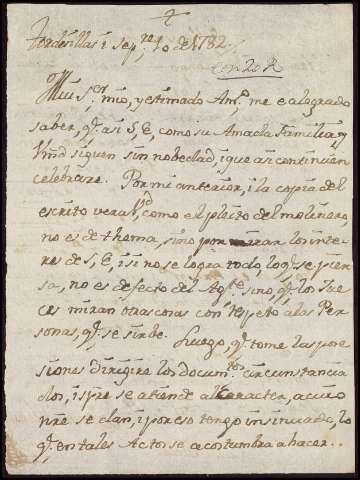 Tordesillas i Sep.re 10 de 1782
Muy S.or mio, y estimado Am.o me e alegrado
saber, q.e asi S. E, como su Amada Familia, y
Vmd siguen sin nobedad, i que asi continuen
celebrare. Por mi anterior, i la copia del
escrito vera Vd, como el pleito del molinero,
no es de thema, sino por mirar los inte
res de S. E, i si no se logra todo, lo q.e se pien
sa, no es defecto del Ag.te sino q.e los Jue
ces miran otras cosas con respeto a las Per
sonas, q.e se sirbe. Luego, q.e tome las pose
siones dirigire los docum.tos circunstancia
dos, i sp.re se atiende al caracter, a cuio
nre se dan, i por eso tengo insinuado, lo
q.e en tales Actos se acostumbra a hacer..